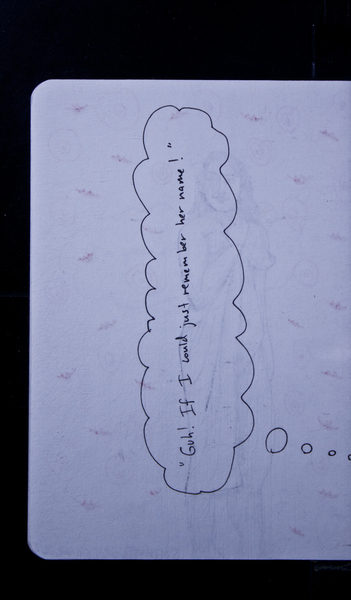 "Guh! If I could just remember her name!"